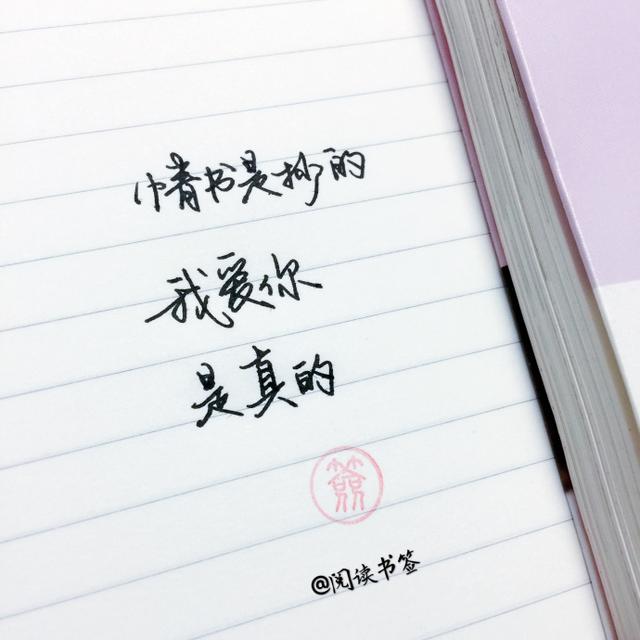 情书是抄的
我爱你
是真的
签
@阅读书签